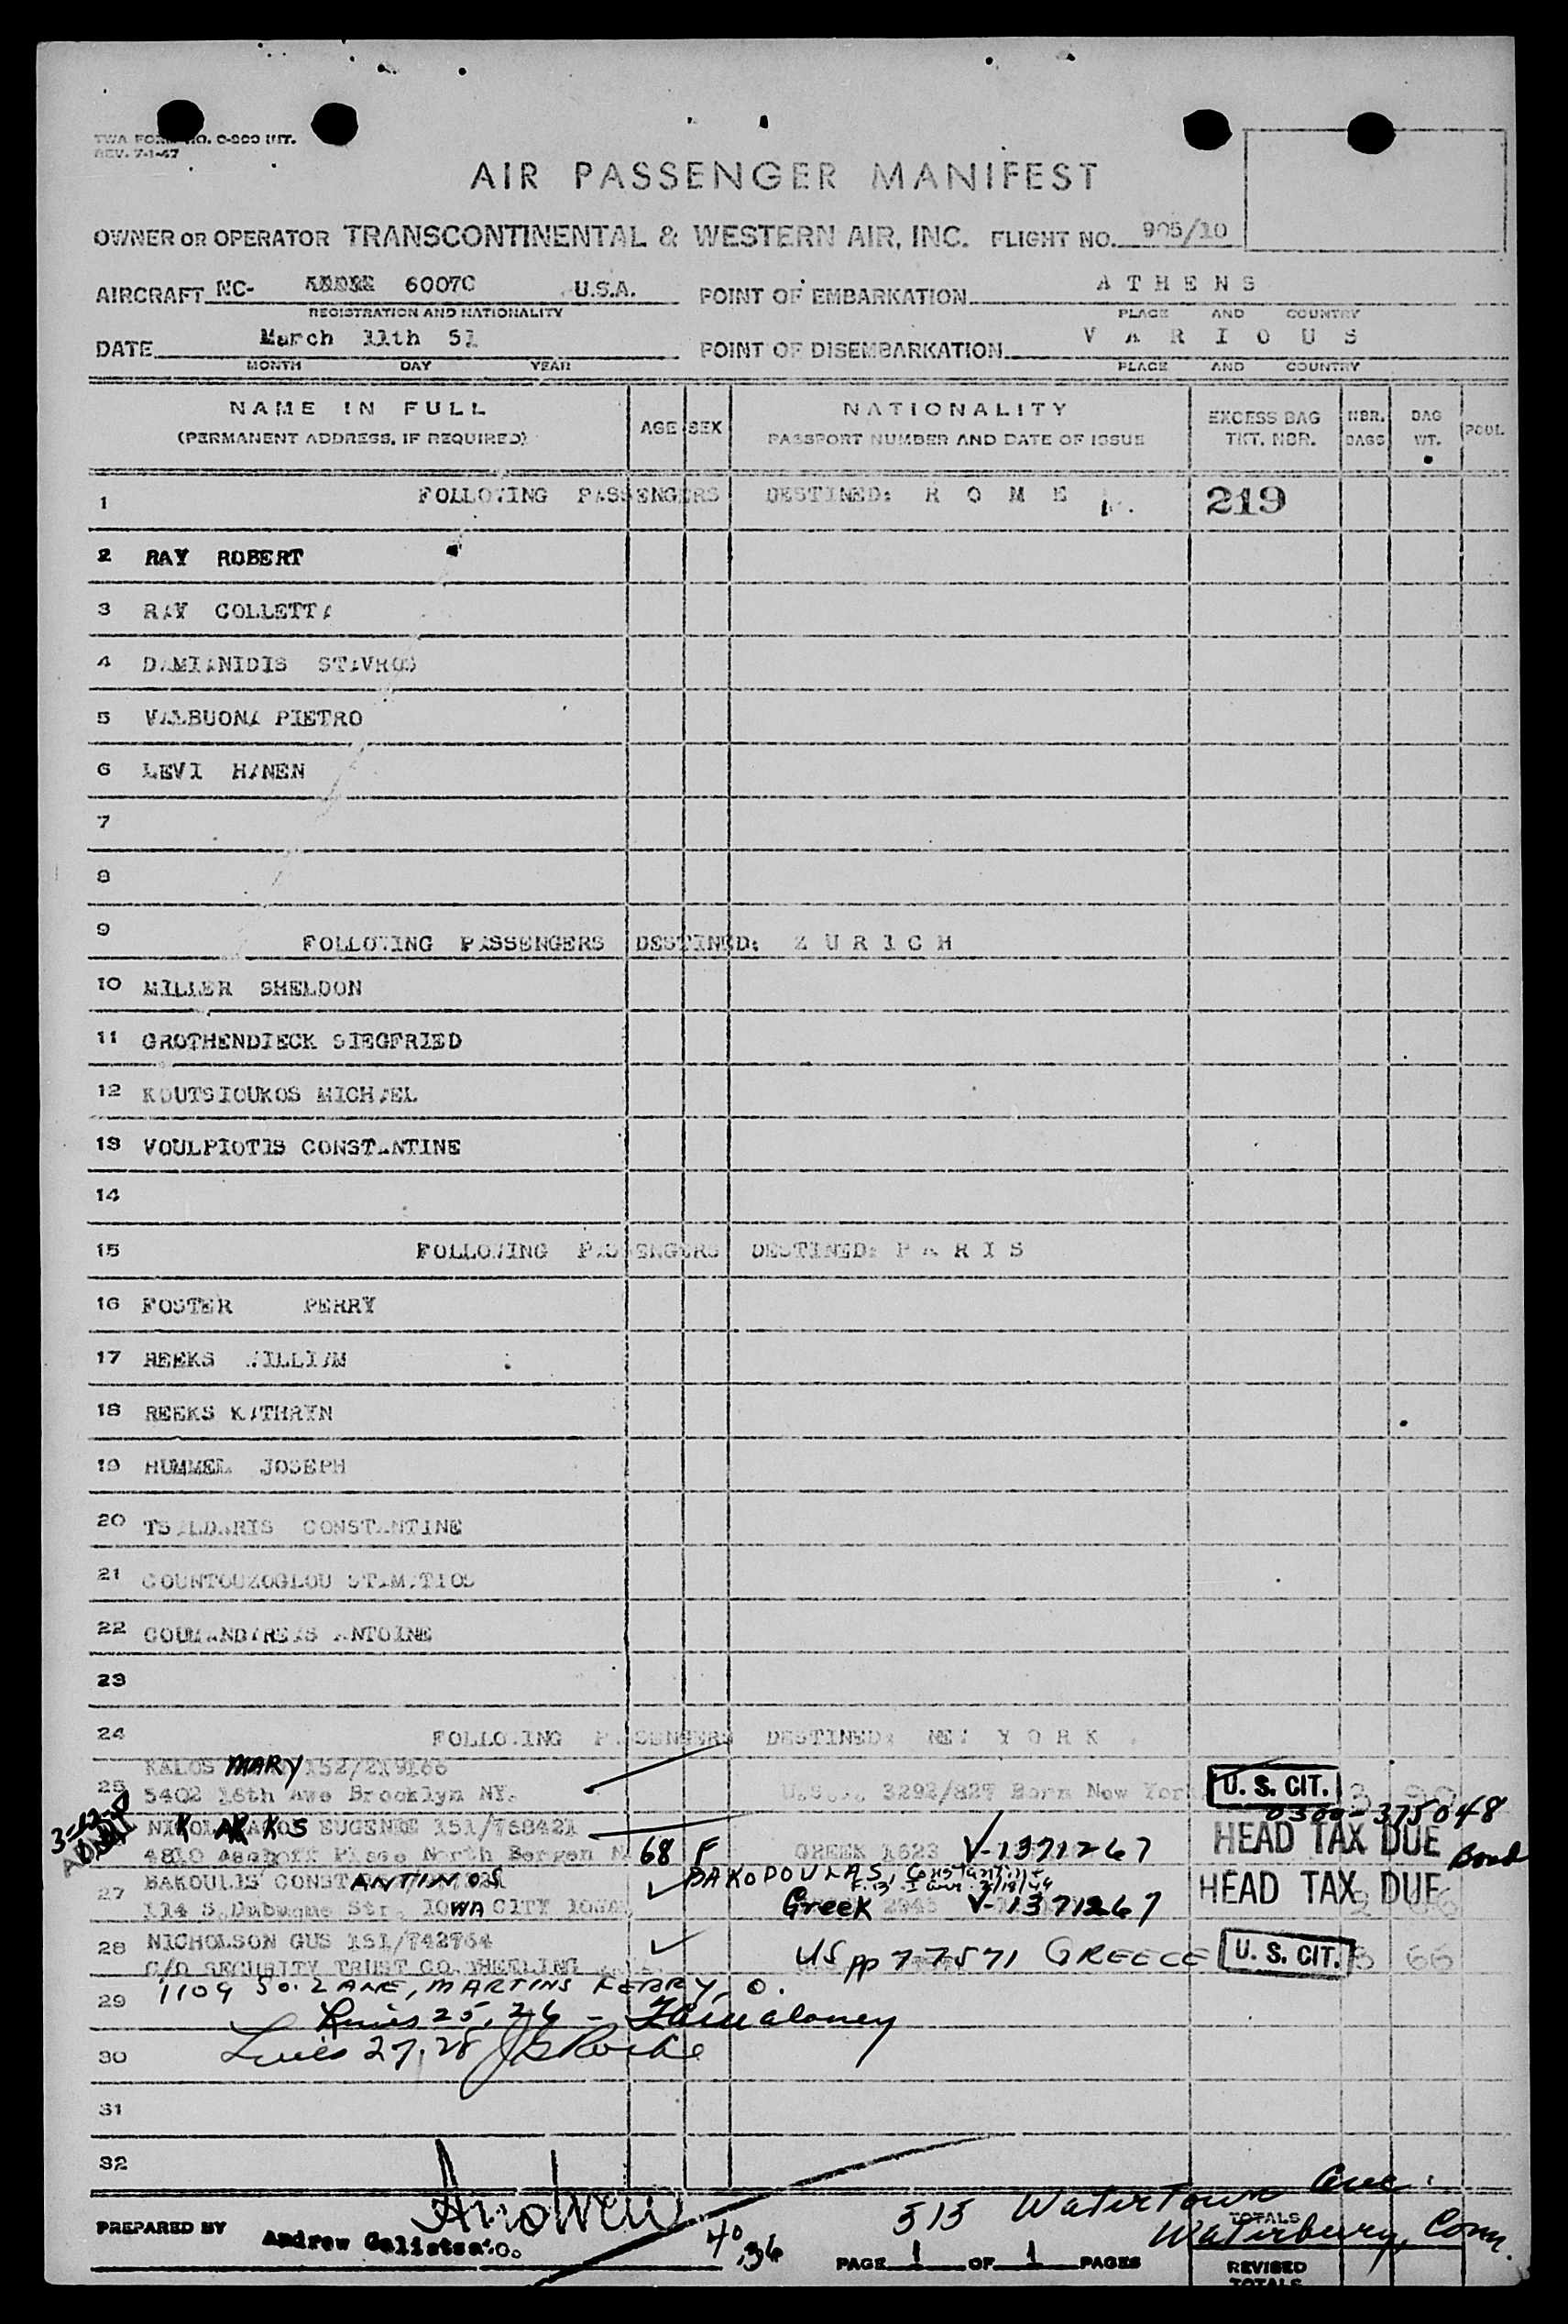 TWA FORM NO. C-900 INT.
REV. 7-1-47
AIR PASSENGER MANIFEST
OWNER OR OPERATOR TRANSCONTINENTAL & WESTERN AIR, INC. FLIGHT NO. 905/10
AIRCRAFT NC- 6007C U.S.A. POINT OF EMBARKATION A T H E N S
REGISTRATION AND NATIONALITY PLACE AND COUNTRY
DATE March 11th 51 POINT OF DISEMBARKATION V A R I O U S
MONTH DAY YEAR PLACE AND COUNTRY
NAME IN FULL AGE SEX NATIONALITY EXCESS BAG NBR. BAG POUL
(PERMANENT ADDRESS, IF REQUIRED) PASSPORT NUMBER AND DATE OF ISSUE TKT. NBR. BAGS WT.
1 FOLLOWING PASSENGERS DESTINED: R O M E 219
2 RAY ROBERT
3 RAY COLLETTA
4 DAMIANIDIS STAVROS
5 VALBUONA PIETRO
6 LEVI HANEN
7
8
9 FOLLOWING PASSENGERS DESTINED: Z U R I C H
10 MILLER SHELDON
11 GROTHENDIECK SIEGFRIED
12 KOUTSIOUKOS MICHAEL
13 VOULPIOTIS CONSTANTINE
14
15 FOLLOWING PASSENGERS DESTINED: P A R I S
16 FOSTER PERRY
17 REEKS WILLIAM
18 REEKS KATHRYN
19 HUMMEL JOSEPH
20 TSALDARIS CONSTANTINE
21 COUNTOUZOGLOU STAMATIOS
22 COUMANDAREAS ANTOINE
23
24 FOLLOWING PASSENGERS DESTINED: NEW Y O R K
KALOS MARY 152/219166
25 5402 16th Ave Brooklyn NY. 3292/827 Born New York U. S. CIT. 3
0300-375048
3-12 ADMIT EUGENDE 151/768421 HEAD TAX DUE Bond
4810 Place North Bergen N 68 F GREEK 1623 V-1371267
27 BAKOULIS CONSTANTINOS BAKODOULAS, Constantine HEAD TAX DUE
114 S. Dubuque Str. IOWA CITY IOWA Greek V-1371267
28 NICHOLSON GUS 151/742764 US PP 77571 GREECE U. S. CIT. 66
C/O SECURITY TRUST CO. WHEELING
29 1109 SO. ZANE, MARTINS FERRY, O.
Lines 25, 26 -
30 Lines 27, 28
31
32
Andrew
PREPARED BY Andrew 40.36 515 Watertown Ave.
TOTALS
Waterbury, Conn.
PAGE 1 OF 1 PAGES
REVISED
TOTALS